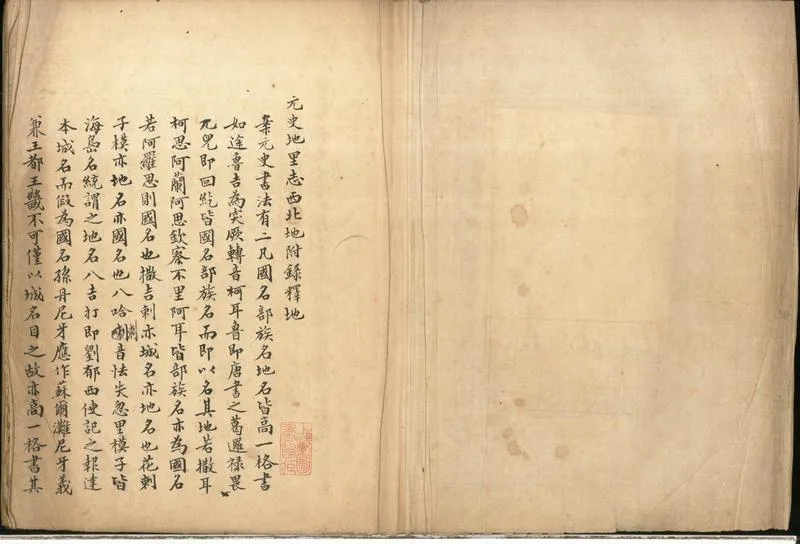 元史地里志西北地附錄釋地
案元史書法有二凡國名部族名地名皆高一格書
如途魯吉為突厥轉音柯耳魯即唐書之葛邏祿畏
兀兒即回紇皆國名部族名而即以名其地若撒耳
柯思阿蘭阿思欽察不里阿耳皆部族名亦為國名
若阿羅思則國名也撒吉剌亦城名亦地名也花剌
子模亦地名亦國名也八哈剌音怯失忽里模子皆
海島名統謂之地名八吉打即劉郁西使記之報達
本城名而假為國名孫丹尼牙應作蘇爾灘尼牙義
兼王都王畿不可僅以城名目之故亦高一格書其